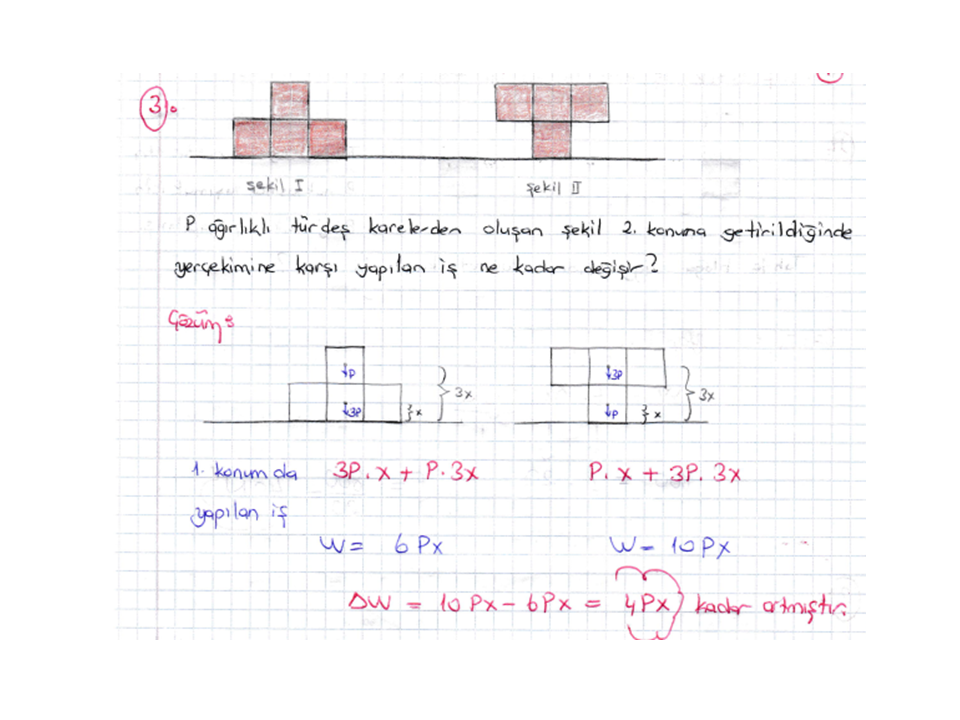 3.
şekil I şekil II
P ağırlıklı türdeş karelerden oluşan şekil 2. konuma getirildiğinde
yerçekimine karşı yapılan iş ne kadar değişir?
Çözüm:
↓P } 3x ↓3P } 3x
↓3P } x ↓P } x
1. konumda 3P.x + P.3x P.x + 3P.3x
yapılan iş
W = 6Px W = 10Px
ΔW = 10Px - 6Px = 4Px kadar artmıştır.